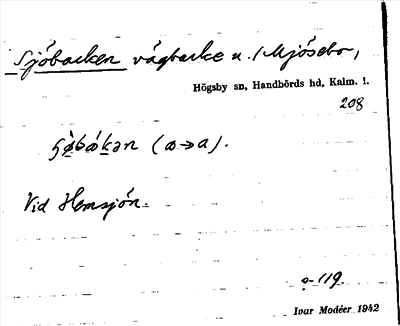 Sjöbacken vägbacke n. Mjösebo,
Högsby sn, Handbörds hd, Kalm. l.
208
(a→a).
Vid Hemsjön.
119.
Ivar Modéer 1942